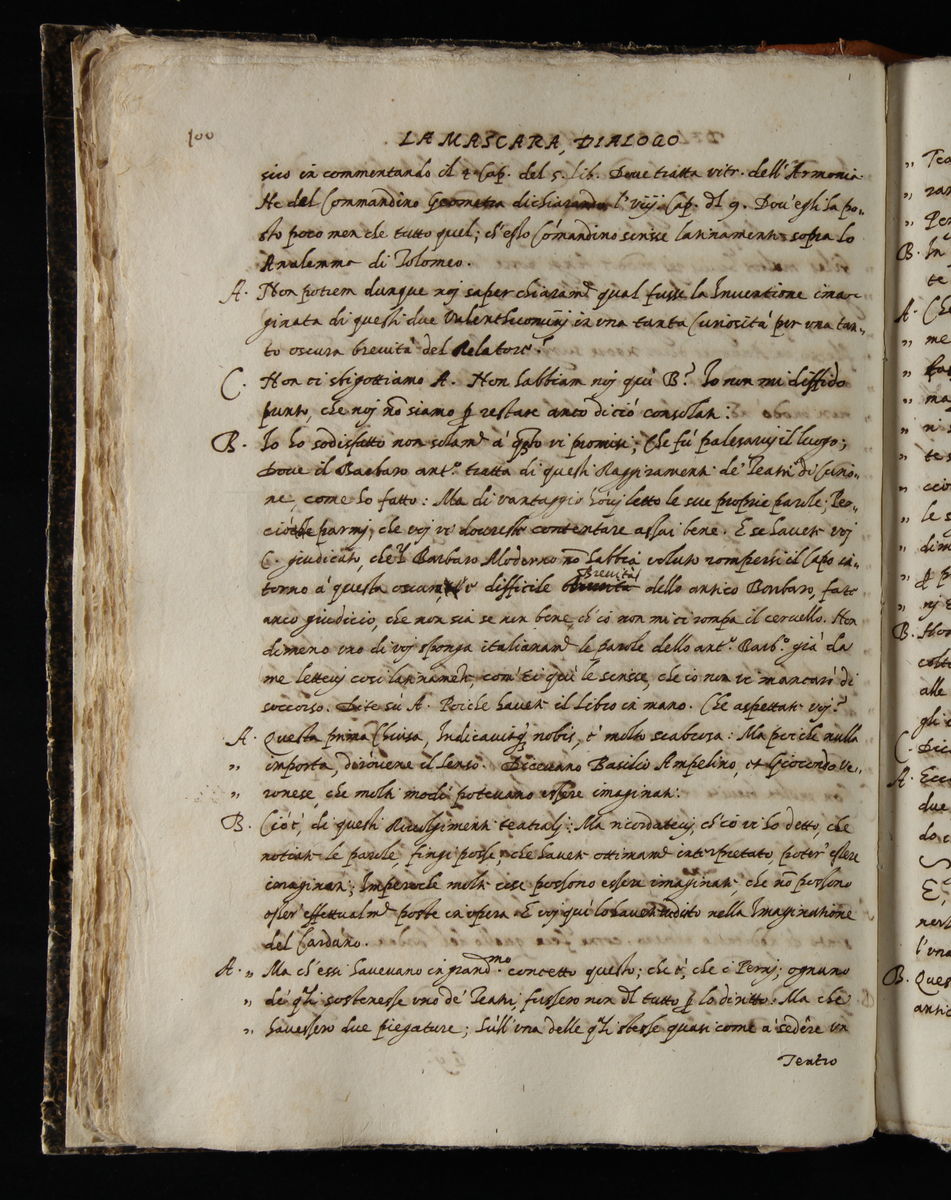 100
LA MASCARA, DIALOGO
sico in commentando il 4 Cap. del 5. lib. Dove tratta vitr. dell'Armonia
Ne del Commandino Geometra dichiarando l' viij Cap. dl 9. Dov'egli la po-
sto poco men che tutto quel; ch'esso Comandino scrisse latinamente sopra lo
Analemma di Tolomeo.
A. Non potiem dunque noj saper chiaramᵉ qual fusse la Inventione ima-
ginata di questi due Valenthuominj in una tanta Curiosità per una tan-
to oscura brevità del Relatore?
C. Non ci sbigottiamo A. Non habbiam noj quì B? Io non mi diffido
punto, che noj nō siamo p restare anco di ciò consolati:
B. Io ho sodisfatto non solamᵉ à qto vi promisi; Che fù palesarvj il luogo;
Dove il Barbaro antᵒ. tratta di questi Raggiramenti de' Teatri di Curio-
ne, come ho fatto: Ma di vantaggio hovvj letto le sue proprie parole; Per-
ciòche parmj, che voj vi dovreste contentare assai bene. E se havete voj
C. giudicato, che'l Barbaro Moderno nō habbia voluto rompersi il Capo in-
torno à questa oscura, e difficile Brevità dello antico Barbaro, fate
anco giudicio, che non sia se non bene, ch'io non mi ci rompa il cervello. Non
dimeno uno di voj sponga italianamᵉ le parole dello antᵒ. Barbᵒ. già da
me lettevj così latinamente, com'Ei quì le scrisse, che io non vi mancarò di
soccorso. Dite sù A. Poiche havete il Libro in mano. Che aspettate voj?
A. Questa prima Chiusa, Indicavitq3 nobis, è molto scabrosa: Ma perche nulla
" importa, diròvene il senso. Dicevano Basilio Ampelino, et Giocondo Ve-
" ronese, che molti modi potevano essere imaginati:
B. Cioè, di questi Rivolgimenti teatralj: Ma ricordatevj, ch'io vi ho detto, che
notiate le parole, fingi posse; che havete ottimamᵉ interpretato, poter' essere
imaginati; Imperoche molte cose possono essere imaginate, che nō possono
esser' effettualmᵉ poste in opera. E voj quì lo havete udito nella Imaginatione
del Cardano.
A. " Ma ch'essi havevano in grandmo concetto questo; che è, che i Pernj; ognuno
" de' qli sostenesse uno de' Teatri fussero non dl tutto p lo diritto: Ma che
" havessero due piegature; sùll'una delle qli stesse quasi come à sedere un
Teatro